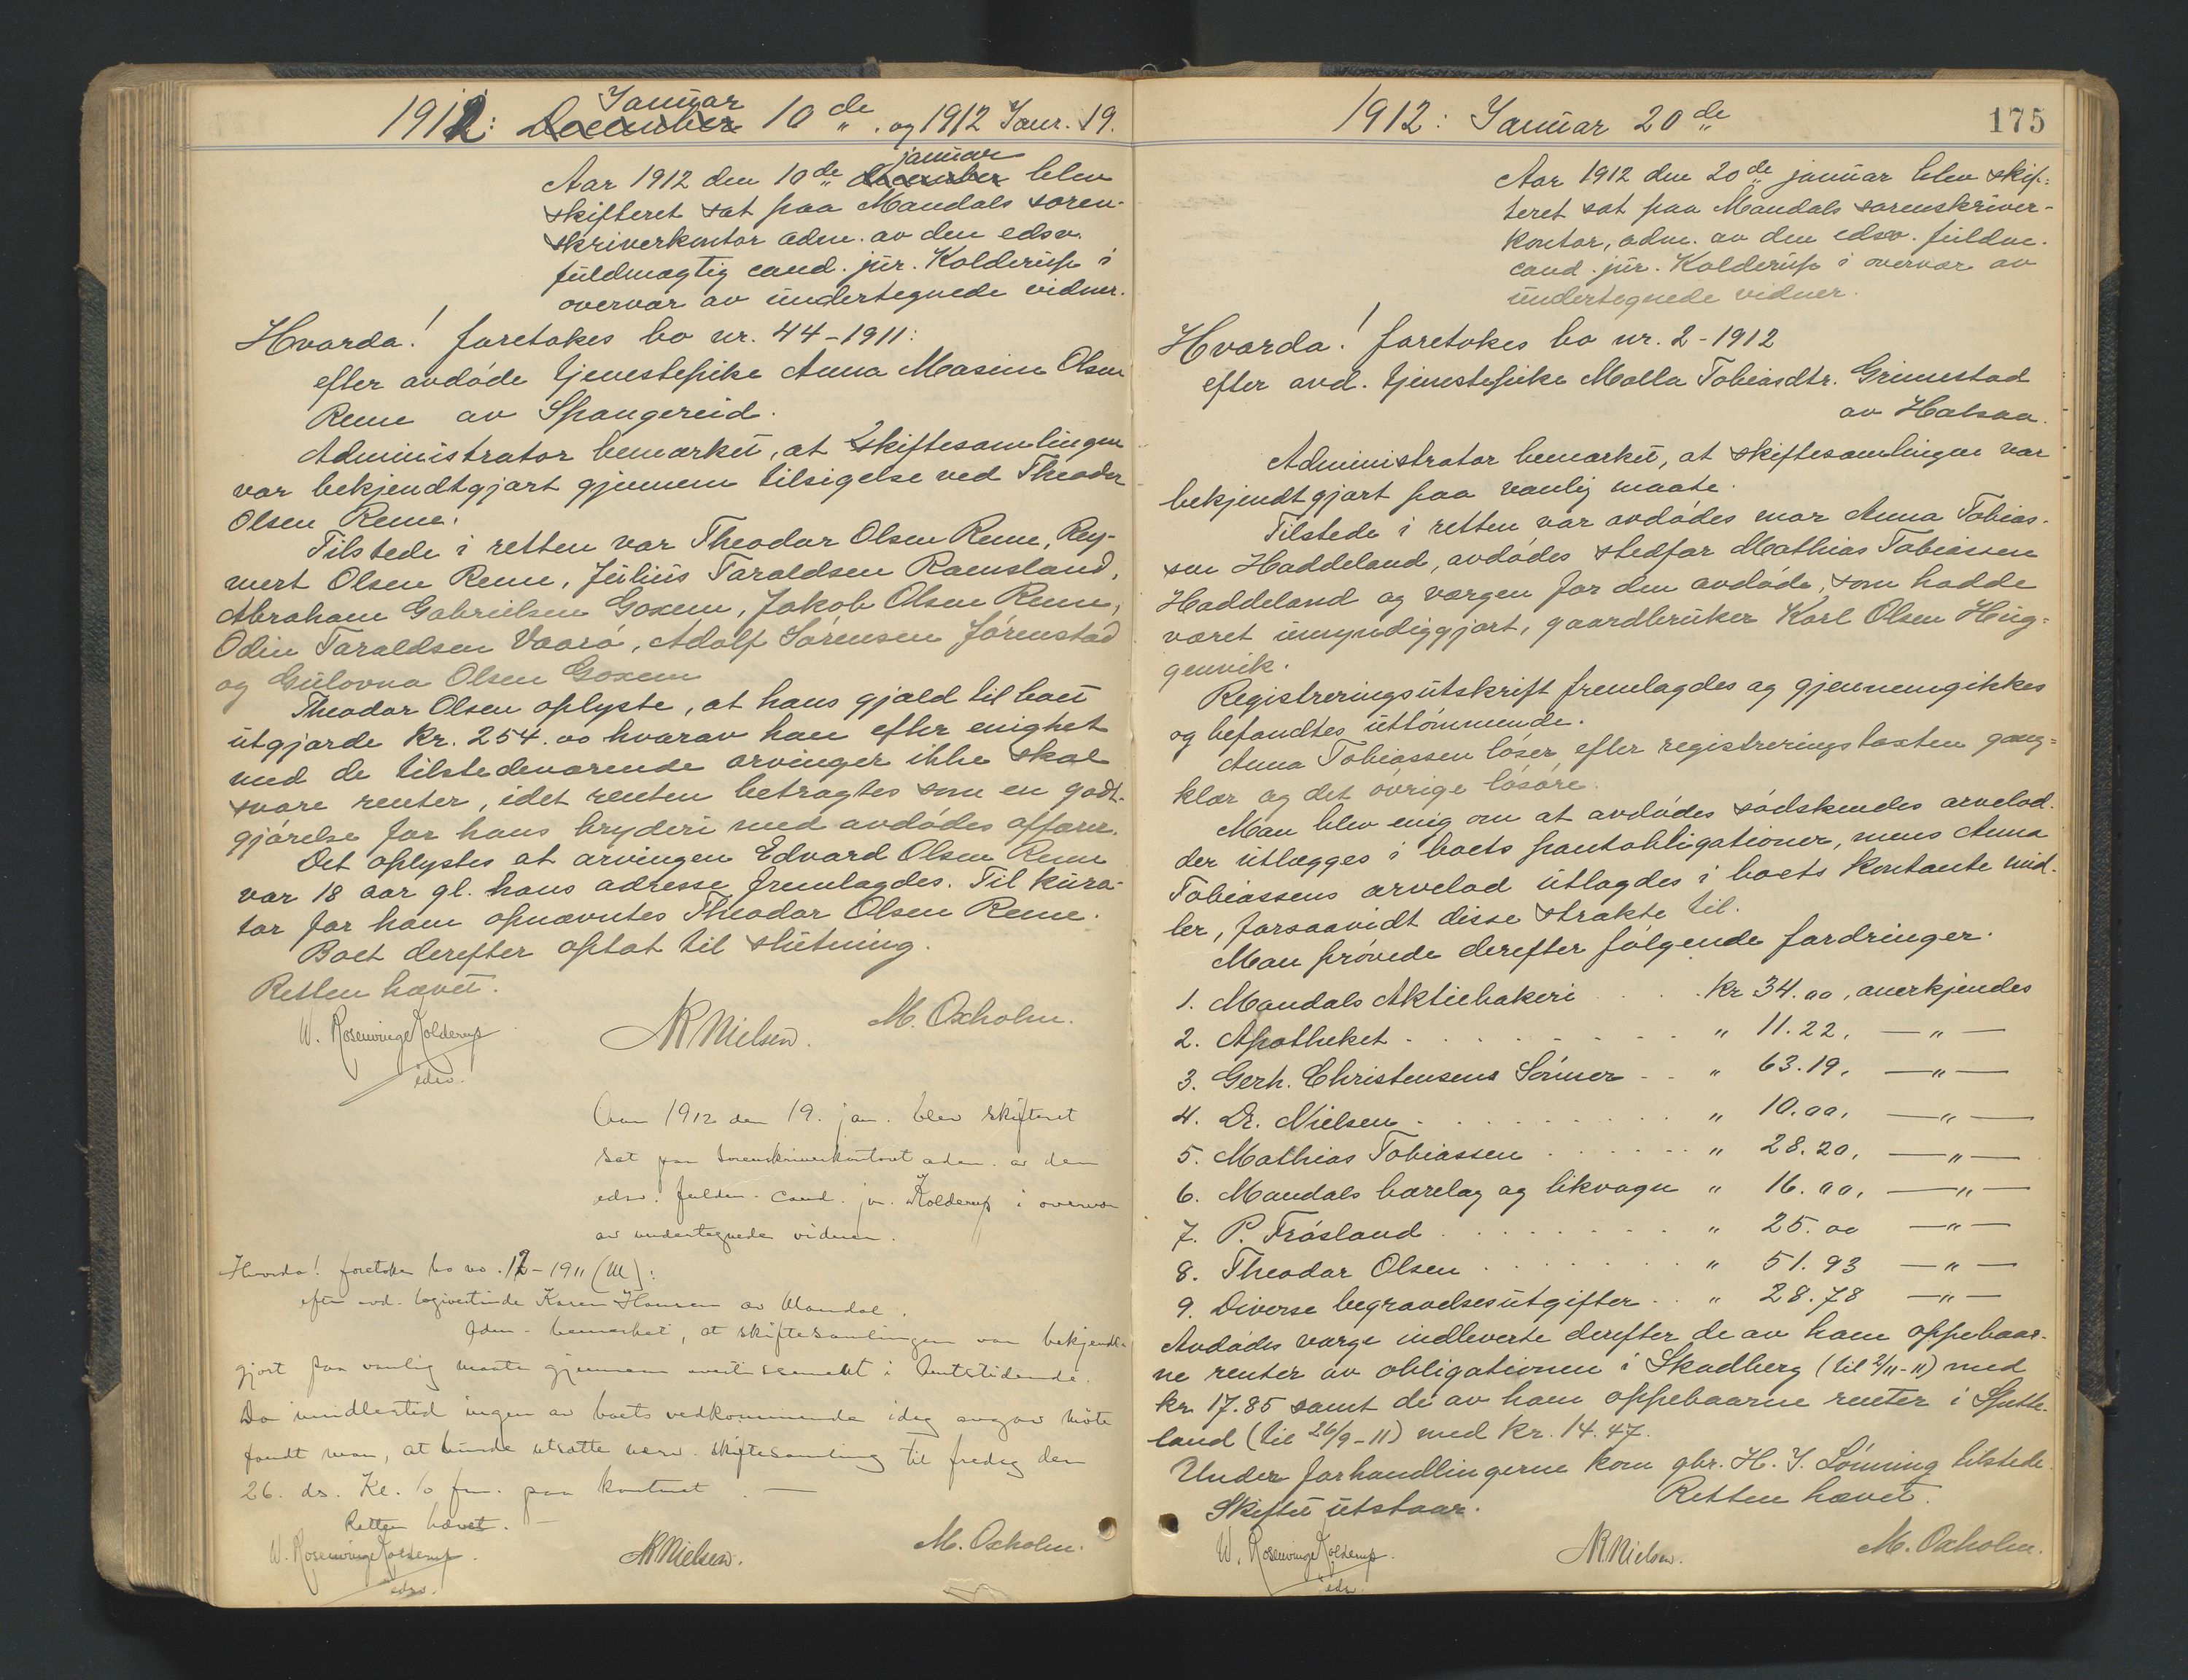 1912: Januar December 10de og 1912 Janr. 19.
Aar 1912 den 10de december januar blev
skifteret sat paa Mandals soren-
skriverkontor adm. av den edsv.
fuldmægtig cand. jur. Kolderup i
overvær av undertegnede vidner.
Hvorda! foretokes bo nr. 44-1911:
efter avdøde tjenestepike Anna Masine Olsen
Reme av Spangereid.
Administrator bemærket, at skiftesamlingen
var bekjendtgjort gjennem tilsigelse ved Theodor
Olsen Reme.
Tilstede i retten var Theodor Olsen Reme, Rey-
mert Olsen Reme, Julius Taraldsen Ramsland,
Abraham Gabrielsen Goxem, Jakob Olsen Reme,
Odin Taraldsen Vaarø, Adolf Sørensen Jørenstad
og Gulovna Olsen Goxem
Theodor Olsen oplyste, at hans gjæld til boet
utgjorde kr. 254.00 hvorav han efter enighet
med de tilstedeværende arvinger ikke skal
svare renter, idet renten betragtes som en godt-
gjørelse for hans bryderi med avdødes affærer.
Det oplystes at arvingen Edvard Olsen Reme
var 18 aar gl. hans adresse fremlagdes. Til kura-
tor for ham opnævntes Theodor Olsen Reme.
Boet derefter optat til slutning.
Retten hævet.
W. Rosenvinge Kolderup
edsv.
NR Nielsen.
M. Oxholm.
Aar 1912 den 19. jan. blev skifteret
sat paa sorenskriverkontoret adm. av den
edsv. fuldm. cand. jur. Kolderup i overvær
av undertegnede vidner.
Hvorda! foretokes bo no. 12-1911 (M):
efter avd. logivertinde Karen Hansen av Mandal.
Adm. bemærket, at skiftesamlingen var bekjendt-
gjort paa vanlig maate gjennem avertissement i Amtstidende.
Da imidlertid ingen av boets vedkommende idag avgav møte
fandt man, at burde utsætte nærv. skiftesamling til fredag den
26. ds. Kl. 10 fm. paa kontoret. —
Retten hævet. —
W. Rosenvinge Kolderup.
edsv.
NR Nielsen.
M. Oxholm.
1912: Januar 20de
175
Aar 1912 den 20de januar blev skif-
teret sat paa Mandals sorenskriver-
kontor, adm. av den edsv. fuldm.
cand. jur. Kolderup i overvær av
undertegnede vidner.
Hvorda! foretokes bo nr. 2-1912
efter avd. tjenestepike Malla Tobiasdtr. Grimestad
av Halsaa.
Administrator bemærket, at skiftesamlingen var
bekjendtgjort paa vanlig maate.
Tilstede i retten var avdødes mor Anna Tobias-
sen Haddeland, avdødes stedfar Mathias Tobiassen
Haddeland og værgen for den avdøde, som hadde
været umyndiggjort, gaardbruker Karl Olsen Hug-
genvik.
Registreringsutskrift fremlagdes og gjennemgikkes
og befandtes uttømmende.
Anna Tobiassen løser efter registreringstaxten gang-
klær og det øvrige løsøre.
Man blev enig om at avdødes sødskendes arvelod-
der utlægges i boets pantobligationer, mens Anna
Tobiassens arvelod utlagdes i boets kontante mid-
ler, forsaavidt disse strakte til.
Man prøvede derefter følgende fordringer.
1. Mandals Aktiebakeri . . . . kr 34.00, anerkjendes
2. Apotheket . . . . . . . . . " 11.22, — " —
3. Gerh. Christensens Sønner . . " 63.19, — " —
4. Dr. Nielsen . . . . . . . . " 10.00, — " —
5. Mathias Tobiassen . . . . . . " 28.20, — " —
6. Mandals bærelag og likvogn " 16.00, — " —
7. P. Frøsland . . . . . . . . " 25.00 — " —
8. Theodor Olsen . . . . . . . " 51.93 — " —
9. Diverse begravelsesutgifter . . " 28.78 — " —
Avdødes værge indleverte derefter de av ham oppebaar-
ne renter av obligationen i Skadberg (til 2/11-11) med
kr. 17.85 samt de av ham oppebaarne renter i Spitte-
land (til 26/9-11) med kr. 14.47.
Under forhandlingerne kom gbr. H. J. Lønning tilstede.
Skiftet utstaar.
Retten hævet.
W. Rosenvinge Kolderup.
edsv.
NR Nielsen.
M. Oxholm.